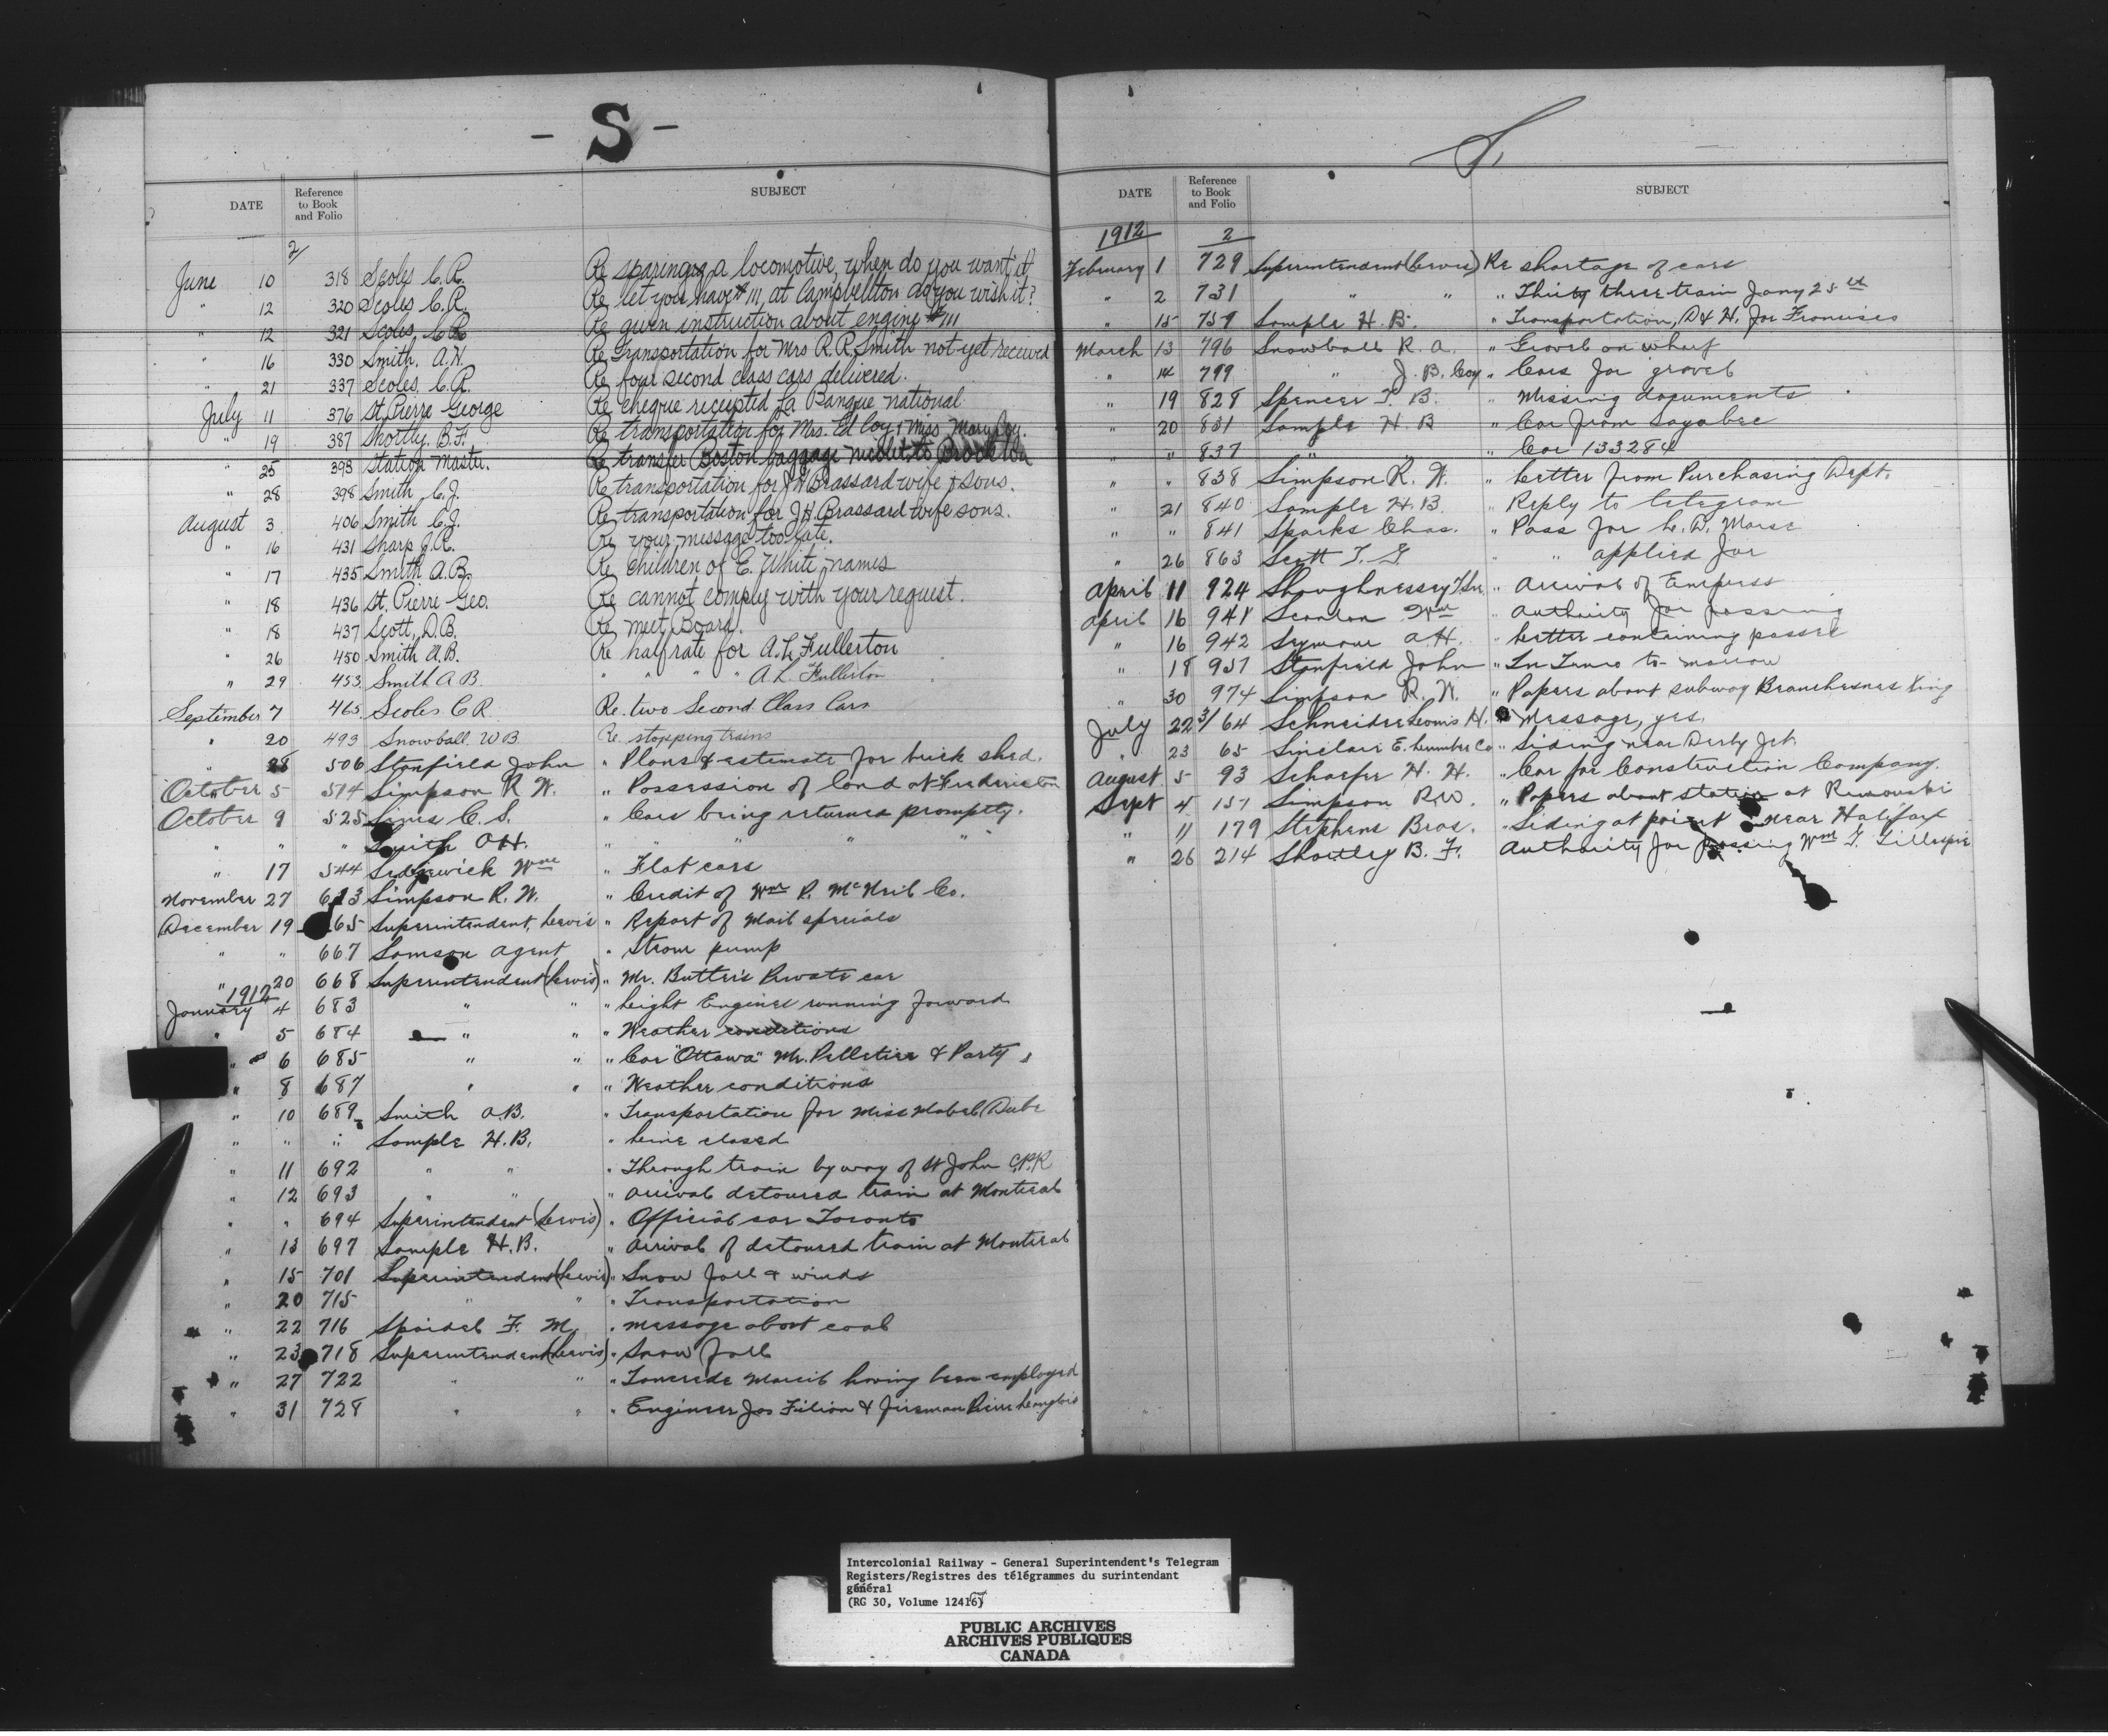 - S -
DATE Reference to Book and Folio SUBJECT
2/
June 10 318 Scoles C.R. Re sparing a locomotive, when do you want it?
" 12 320 Scoles C.R. Re let you have #111, at Campbellton do you wish it?
" 12 321 Scoles C.R. Re given instruction about engine #111
" 16 330 Smith, A.H. Re Transportation for Mrs R.R. Smith not yet received
" 21 337 Scoles C.R. Re four second class cars delivered.
July 11 376 St. Pierre George Re cheque receipted La Banque National
" 19 387 Shortly, B.F. Re transportation for Mrs. Ed Coy & Miss Mary Coy.
" 25 393 Station Master. Re transfer Boston baggage Nicolet to
" 28 398 Smith C.J. Re transportation for J.H. Brassard wife & sons.
August 3 406 Smith C.J. Re transportation for J.H. Brassard wife sons.
" 16 431 Sharp J.R. Re your message too late.
" 17 435 Smith A.B. Re children of E. White, names
" 18 436 St. Pierre Geo. Re cannot comply with your request.
" 18 437 Scott, D.B. Re meet Board.
" 26 450 Smith A.B. Re half rate for A.L. Fullerton
" 29 453 Smith A.B. " " " " A.L. Fullerton
September 7 465 Scoles C R. Re. two Second Class Cars
" 20 493 Snowball. W B. Re. stopping trains
" 28 506 Stanfield John " Plans & estimate for brick shed.
October 5 514 Simpson R W. " Possession of land at Fredericton
October 9 525 Sines C. S. " Cars being returned promptly.
" " " Smith OH. " " " "
" 17 544 Sedgewick Wm " Flat cars
November 27 613 Simpson R. W. " Credit of Wm P. McNeil Co.
December 19 65 Superintendent, Levis " Report of Mail specials
" " 667 Samson Agent " Steam pump
" 20 668 Superintendent (Levis) " Mr. Butler's Private car
1912
January 4 683 " " " Light Engines running forward
" 5 684 " " " Weather conditions
" 6 685 " " " Car "Ottawa" Mr. Pelletier & Party
" 8 687 " " " Weather conditions
" 10 689 Smith A.B. " Transportation for Miss Mabel Dube
" " " Sample H.B. " Line closed
" 11 692 " " " Through train by way of St John C.P.R
" 12 693 " " " Arrival detoured train at Montreal
" " 694 Superintendent (Levis) " Official car Toronto
" 13 697 Sample H.B. " Arrival of detoured train at Montreal
" 15 701 Superintendent (Levis) " Snow fall & winds
" 20 715 " " " Transportation
" 22 716 Spaidal F. M. " message about coal
" 23 718 Superintendent (Levis) " Snow fall
" 27 722 " " " Tancrede Marcil having been employed
" 31 728 " " " Engineer Jos Filion & fireman Pierre Langlois
S
DATE Reference to Book and Folio SUBJECT
1912 2
February 1 729 Superintendent (Levis) Re shortage of cars
" 2 731 " " " Thirty three train Jany 25th
" 15 759 Sample H. B. " Transportation, D & H. for Francises
March 13 796 Snowball R. A. " Gravel on wharf
" 14 799 " J. B. Coy " Cars for gravel
" 19 828 Spencer T. B. " Missing documents
" 20 831 Sample H. B " Car from Sayabec
" " 837 " " " Car 133284
" " 838 Simpson R. W. " Letter from Purchasing Dept.
" 21 840 Sample H.B. " Reply to telegram
" " 841 Sparks Chas. " Pass for L. D. Morse
" 26 863 Scott T. G. " " applied for
April 11 924 Shaughnessy Thos. " Arrival of Empress
April 16 941 Scanlan Wm " Authority for passing
" 16 942 Seymour A H. " Letter containing passes
" 18 951 Stanfield John " In Truro to-morrow
" 30 974 Simpson R. W. " Papers about subway Branchesnes Xing
July 22 3/64 Schneider Louis H. " Message, yes.
" 23 65 Sinclair E. Lumber Co " Siding near Derby Jct.
August 5 93 Schaefer H. H. " Car for Construction Company.
Sept 4 151 Simpson R.W. " Papers about station at Rimouski
" 11 179 Stephens Bros. " Siding at point near Halifax
" 26 214 Shortley B. F. Authority for passing Wm T. Gillespie
Intercolonial Railway - General Superintendent's Telegram
Registers/Registres des télégrammes du surintendant
général
(RG 30, Volume 12416)
PUBLIC ARCHIVES
ARCHIVES PUBLIQUES
CANADA